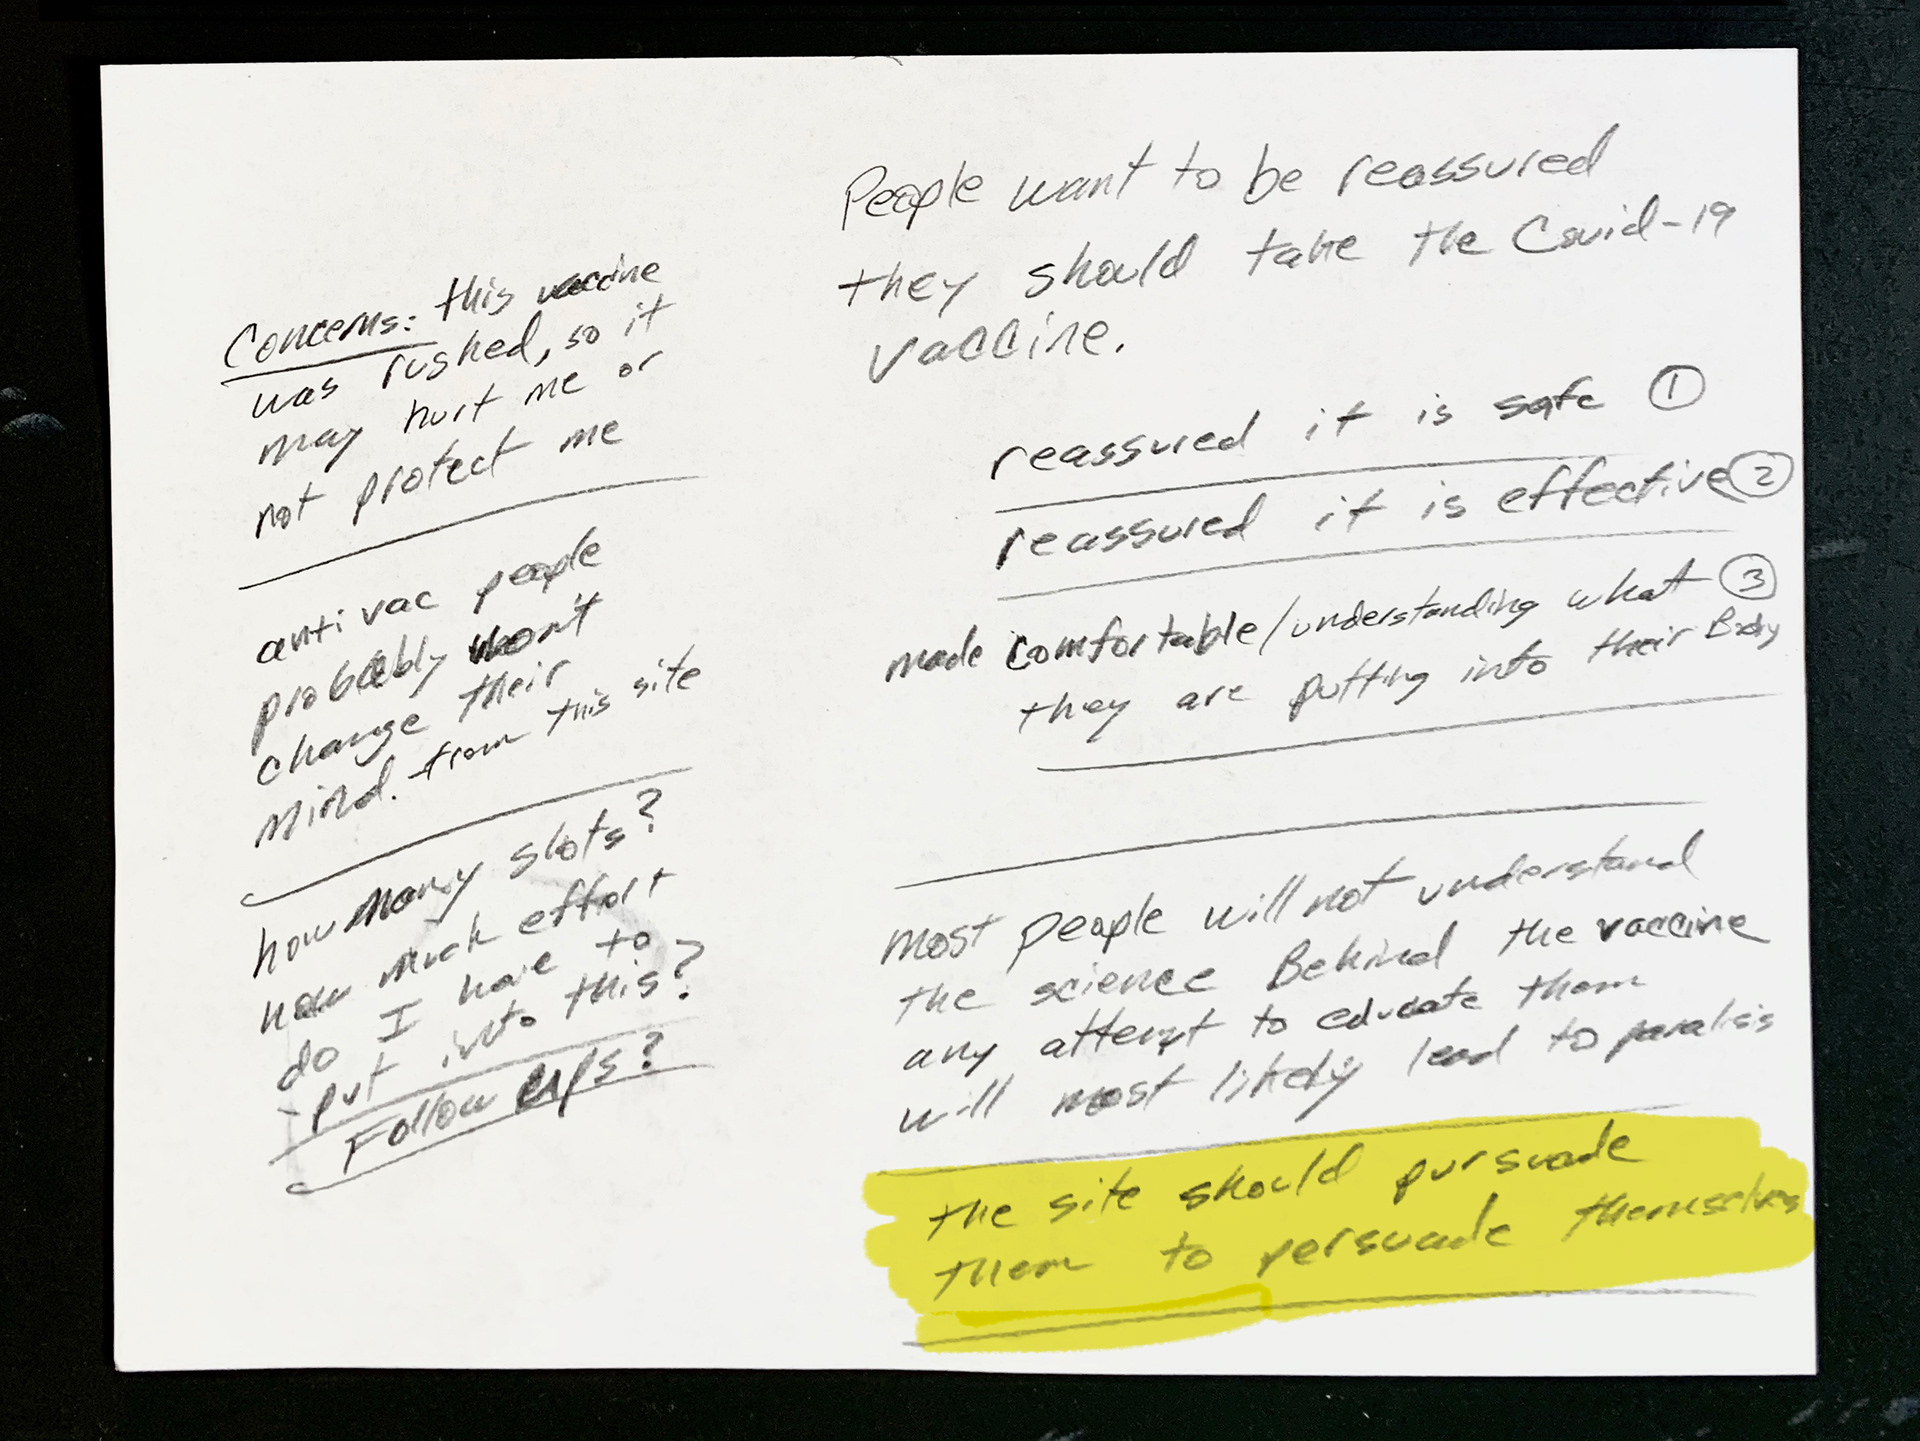 Concerns: this vaccine
was rushed, so it
may hurt me or
not protect me
anti vac people
probably won't
change their
mind. from this site
how many slots?
how much effort
do I have to
put into this?
Follow ups?
People want to be reassured
they should take the Covid-19
vaccine.
reassured it is safe 1
reassured it is effective 2
made comfortable/understanding what 3
they are putting into their Body
most people will not understand
the science Behind the vaccine
any attempt to educate them
will most likely lead to paralisis
the site should pursuade
them to persuade themselves